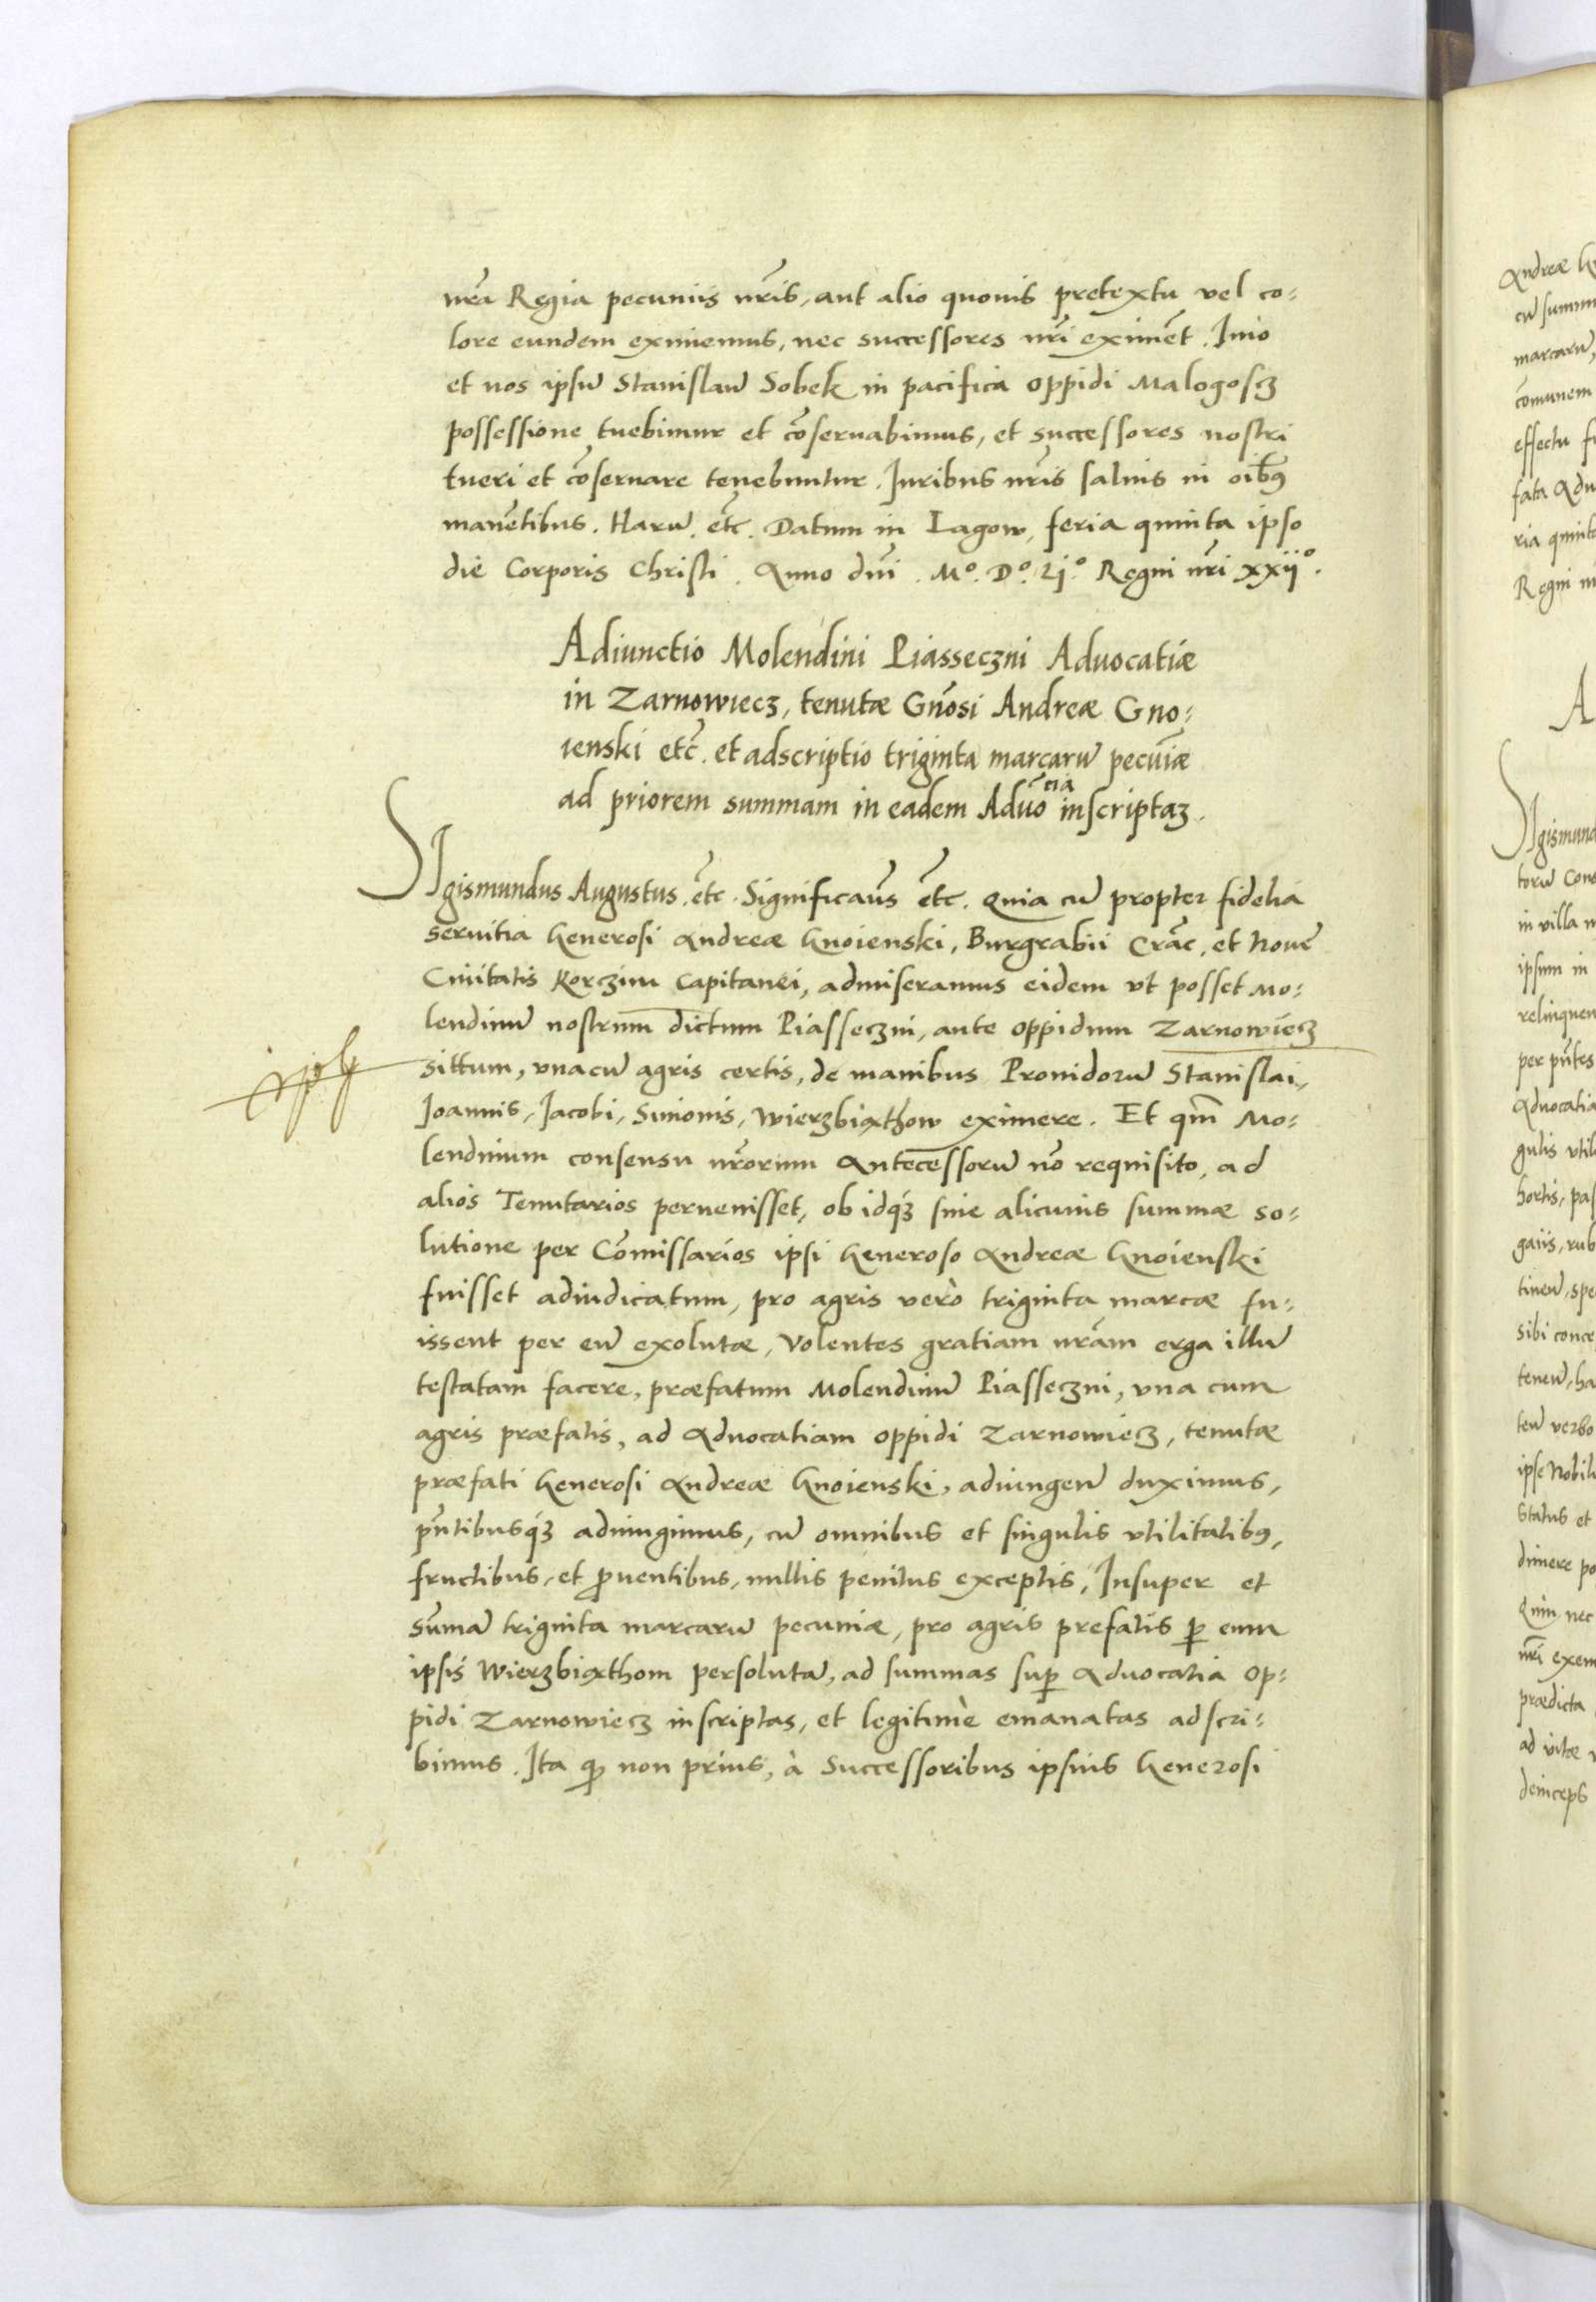 nr̃a Regia pecuniis nr̃is, aut alio quouis pretextu vel co-
lore eundem eximemus, nec successores nr̃i eximẽt. Imo
et nos ipsũ Stanislaũ Sobek in pacifica oppidi Malogoscz
possessione tuebimur et cõseruabimus, et successores nostri
tueri et cõseruare tenebuntur. Iuribus nr̃is saluis in oĩbus
manẽtibus. Harũ. etc̃. Datum in Lagow, feria quinta ipso
die Corporis Christi. Anno dñi. Mº. Dº. Lj.º Regni nr̃i xxijº.
Adiunctio Molendini Piasseczni Aduocatiæ
in Zarnowiecz, tenutæ Gñosi Andreæ Gno-
ienski etc̃. et adscriptio triginta marcarũ pecuniæ
ad priorem summam in eadem Aduocia inscriptaꝫ.
SIgismundus Augustus. etc̃. Significaũs etc̃. Quia cũ propter fidelia
seruitia Generosi Andreæ Gnoienski, Burgrabii Crac̃. et Nouẽ
Ciuitatis Korczim Capitanei, admiseramus eidem vt posset Mo-
lendinũ nostrum dictum Piasseczni, ante oppidum Zarnowiecz
sittum, vnacũ agris certis, de manibus Prouidorũ Stanislai,
Joannis, Jacobi, Simonis, Wierzbiathow eximere. Et qm̃ Mo-
lendinum consensu nr̃orum Antecessorũ nõ requisito, ad
alios Tenutarios peruenisset, ob idqꝫ sine alicuius summæ so-
lutione per Cõmissarios ipsi Generoso Andreæ Gnoienski
fuisset adiudicatum, pro agris verò triginta marcæ fu-
issent per eũ exolutæ, Volentes gratiam nr̃am erga illũ
testatam facere, præfatum Molendinũ Piasseczni, vna cum
agris præfatis, ad Aduocatiam oppidi Zarnowiecz, tenutæ
præfati Generosi Andreæ Gnoienski, adiungeñ duximus,
pñtibusqꝫ adiungimus, cũ omnibus et singulis vtilitatibꝰ,
fructibus, et ꝓuentibus, nullis penitus exceptis, Insuper et
sũmã triginta marcarũ pecuniæ, pro agris prefatis ꝑ eum
ipsis Wierzbiathom persolutã, ad summas suꝑ Aduocatia Op-
pidi Zarnowiecz inscriptas, et legitimè emanatas adscri-
bimus. Ita ꝙ non prius, à Successoribus ipsius Generosi